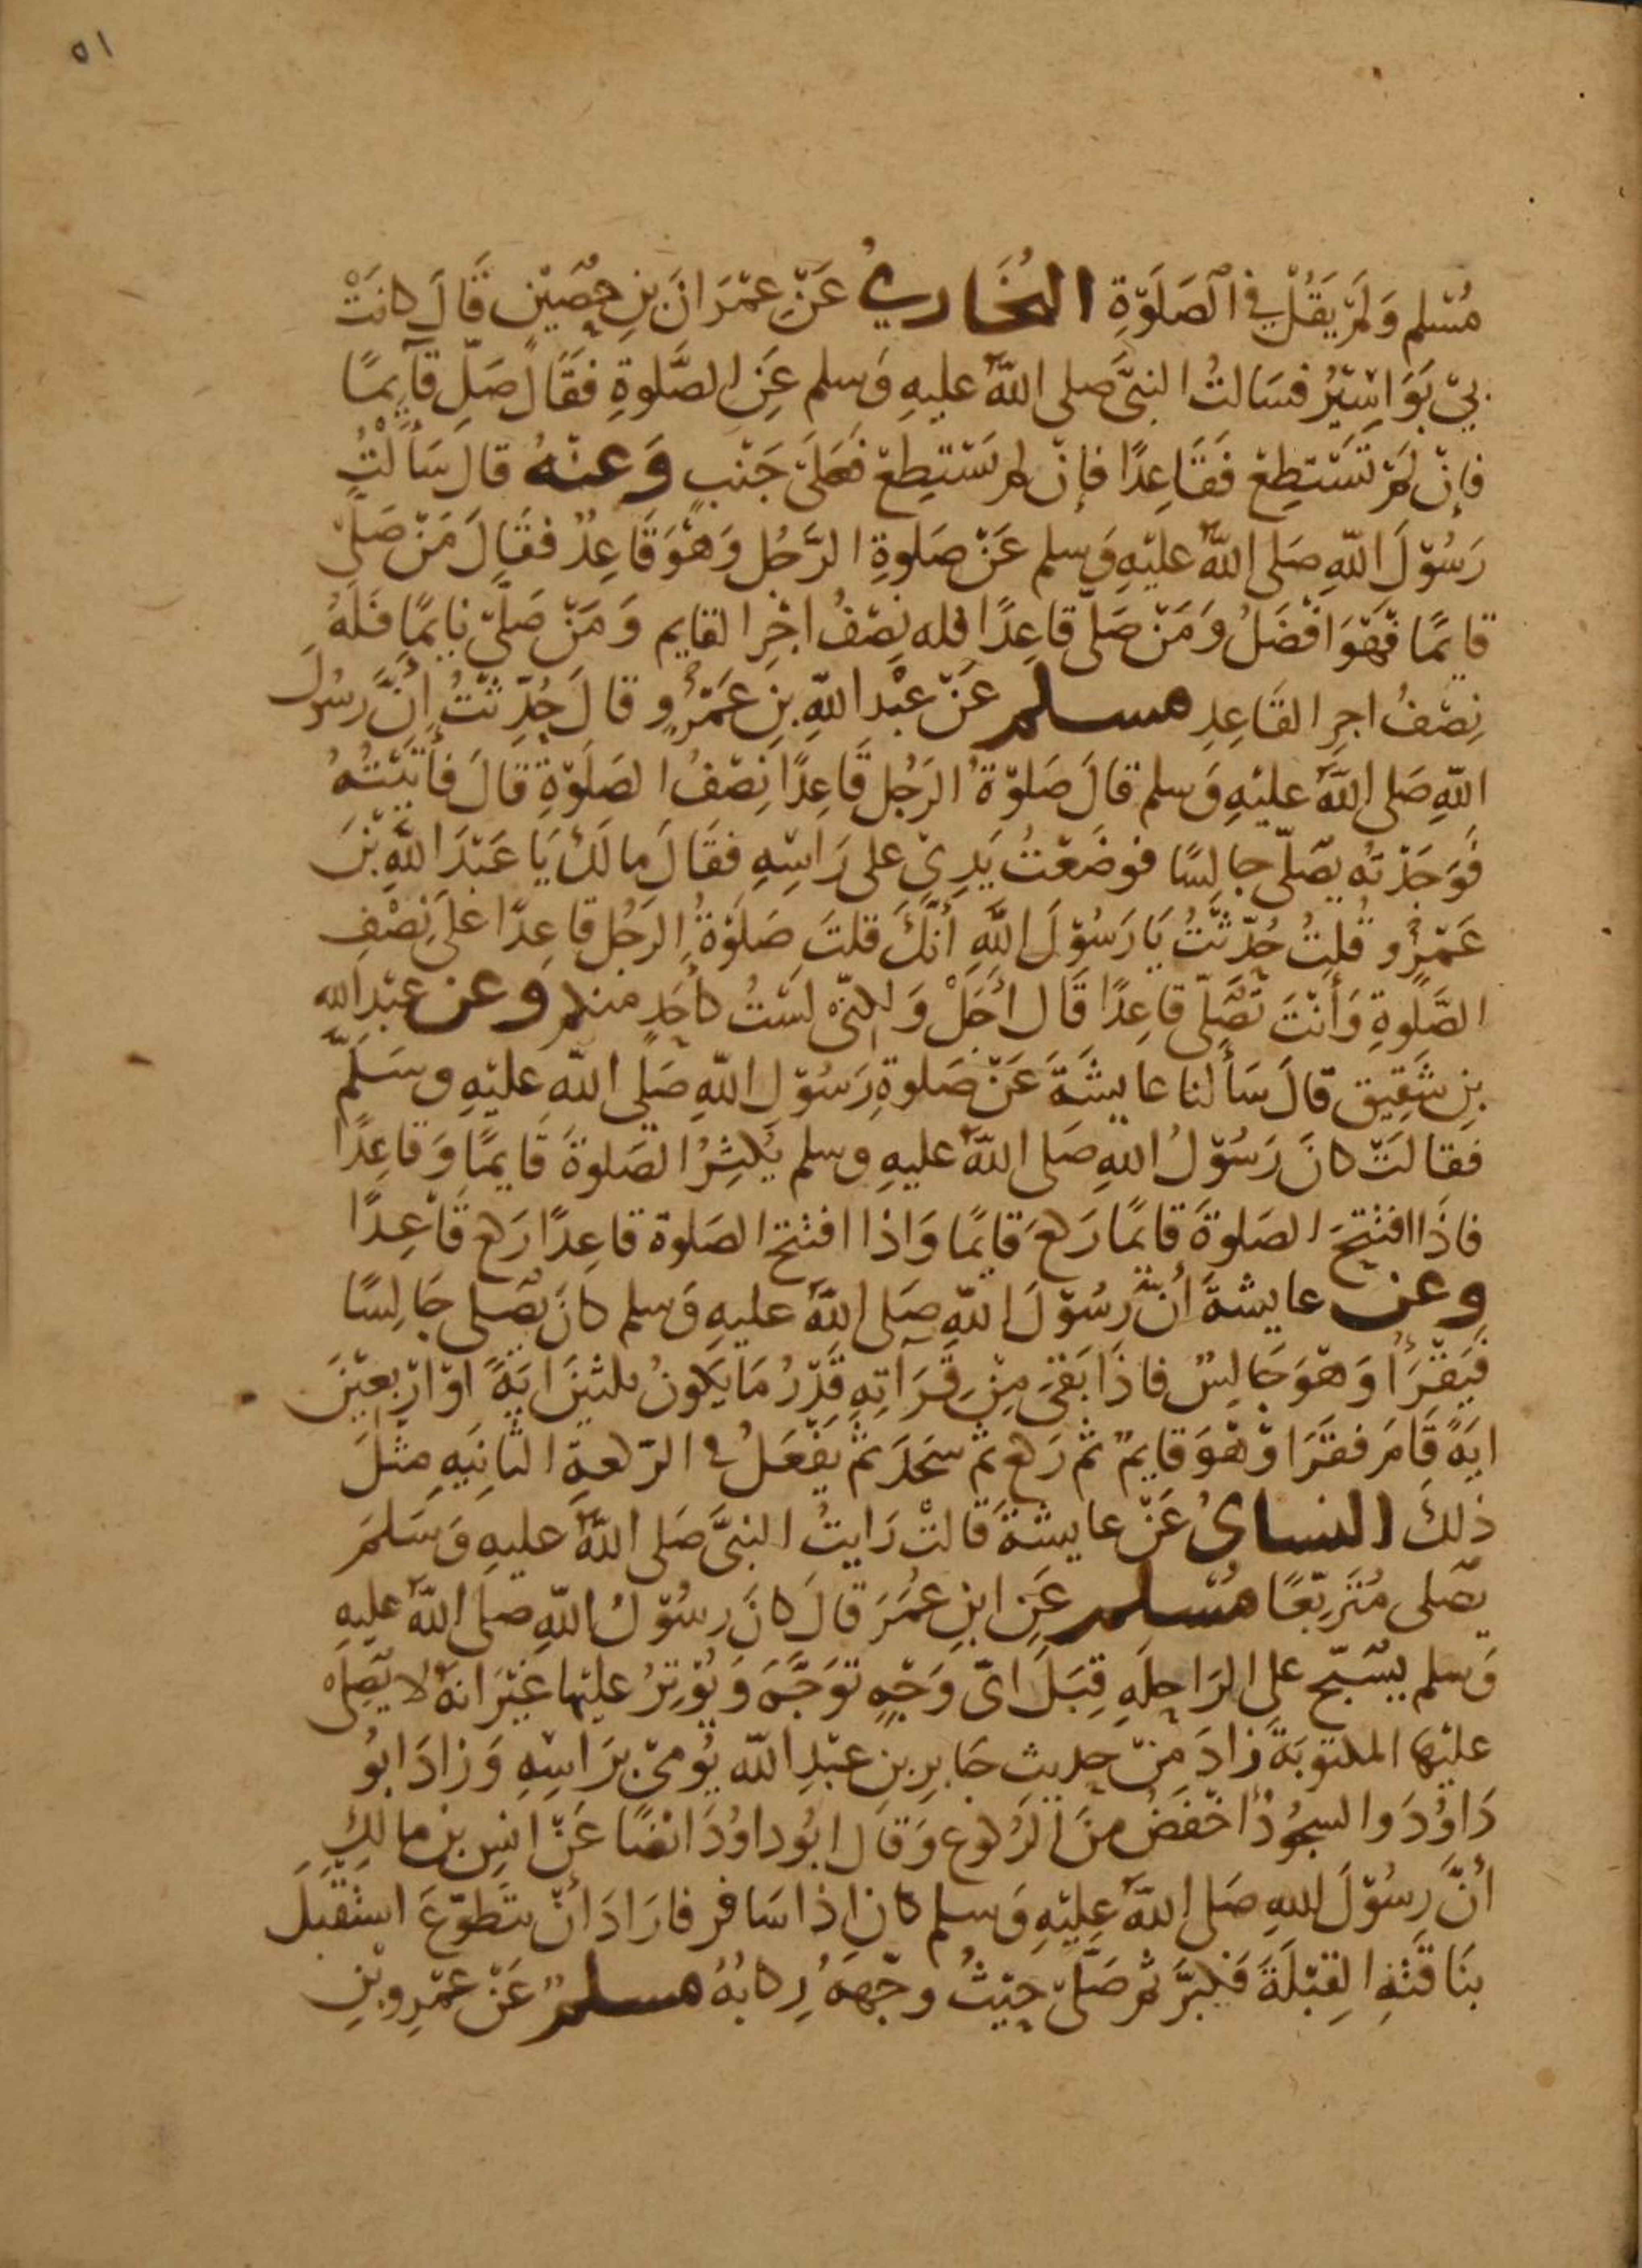 ٥١
مُسْلِم وَلَمْ يَقُلْ فِي الصَلَوٰةِ البُخَاريُ عَنْ عِمْرَانَ بنِ حُصَيْنٍ قَالَ كانَتْ
بِيْ بَوَاسِيْرُ فسَالتُ النبيَّ صلى اللهُ عليهِ وَسلم عَنِ الصَّلوةِ فَقَالَ صَلِّ قآيِمًا
فإنْ لَمْ تَسْتَطِعْ فَقَاعِدًا فإنْ لم تَسْتَطِعْ فَعَلَى جَنْبٍ وَعنهُ قالَ سَأَلْتُ
رَسُوْلَ اللهِ صَلى اللهُ عليْهِ وَسلم عَنْ صَلوةِ الرَّجُلِ وَهْوَ قَاعِدٌ فقَالَ مَنْ صَلَّى
قايمًا فَهْوَ افْضَلُ وَمَنْ صَلَّى قاعِدًا فله نِصْفُ اجْرِ القايم وَمَنْ صَلَّى نايمًا فَلَهُ
نِصْفُ اجرِ القَاعِدِ مسلم عَنْ عبْدِ اللهِ بنِ عَمْرٍو قالَ حُدِّثْتُ أنَّ رسُولَ
اللهِ صَلى اللهُ عليْهِ وَسلم قالَ صَلوٰةُ الرَجُلِ قَاعِدًا نِصْفُ الصَلوٰةِ قالَ فأتَيْتُهُ
فَوَجَدْتُه يصَلّى جالِسًا فوضَعْتُ يَدِىْ على رَاسِهِ فقَالَ مالَكَ يَا عَبْدَ اللهِ بْنَ
عَمْرٍو قُلتُ حُدِّثْتُ يَا رَسُوْلَ اللهِ أنَّكَ قلتَ صَلَوٰةُ الرَجُلِ قاعِدًا عَلَى نِصْفِ
الصَّلوةِ وَأنْتَ تُصَلّى قاعِدًا قَالَ اجَلْ وَلكِنّى لَسْتُ كأحَدٍ منكم وَعن عبْدِ الله
بنِ شَقِيقٍ قالَ سَألنا عايشَةَ عَنْ صَلوةِ رَسُوْلِ اللهِ صَلى اللهُ عليْهِ وسَلَّمَ
فقالَتْ كانَ رَسُوْلُ اللهِ صَلى اللهُ عليهِ وسلم يُكثِرُ الصَلوةَ قَايمًا وَقاعِدًا
فاذَا افتتَحَ الصَلوةَ قايمًا رَكعَ قايمًا وَاذا افتتح الصَلوة قاعِدًا رَكع قَاعِدًا
وعن عايشةَ أنَّ رسُوْلَ اللهِ صَلى اللهُ عليهِ وَسلم كانَ يُصَلى جَالِسًا
فيَقْرَأُ وَهْوَ جَالسٌ فاذَا بَقىَ مِنْ قِرَآتِهِ قَدْرُ مَا يَكونُ ثلثيْنَ ايَةً اوْ ارْبَعِيْنَ
ايَةً قَامَ فقَرَا وْهْوَ قايمٌ ثم رَكع ثم سَجَدَ ثم يَفْعَلُ في الرَكعةِ الثانِيَهِ مثْلَ
ذٰلكَ النساىُ عَنْ عايشةَ قالتْ رَايتُ النبىَّ صَلى اللهُ عليهِ وَسَلمَ
يُصَلى مُتَرَبّعًا مُسْلم عَنِ ابنِ عُمَرَ قَالَ كانَ رسُوْلُ اللهِ صلى اللهُ عليهِ
وَسلم يسَبّح على الرَاحِلَهِ قِبَلَ اىّ وَجْهٍ توَجَّهَ وَيُوْتِرُ عليْها غَيْرَ انهُ لا يُصَلى
عليْها المكتوبَةَ زادَ مِنْ حديثِ جَابِرِ بنِ عبْدِ الله يُومىْ بِرَاسِهِ وَزادَ ابُو
دَاوُدَ والسجُوْدُ اخْفَضُ منَ الرُكوع وَقالَ ابُو داوُدَ ايْضًا عَنْ انسِ بن مالِكٍ
أنَّ رسُوْلَ اللهِ صَلى اللهُ عليْهِ وَسلم كان اذا سَافر فارَادَ أنْ يتَطوّعَ استَقْبَلَ
بنَاقَتِهِ القِبْلَةَ فَكبَّرَ ثم صَلَّى حيْثُ وجّههُ رِكابُهُ مسلمٌ عَنْ عمْرِو بْنِ